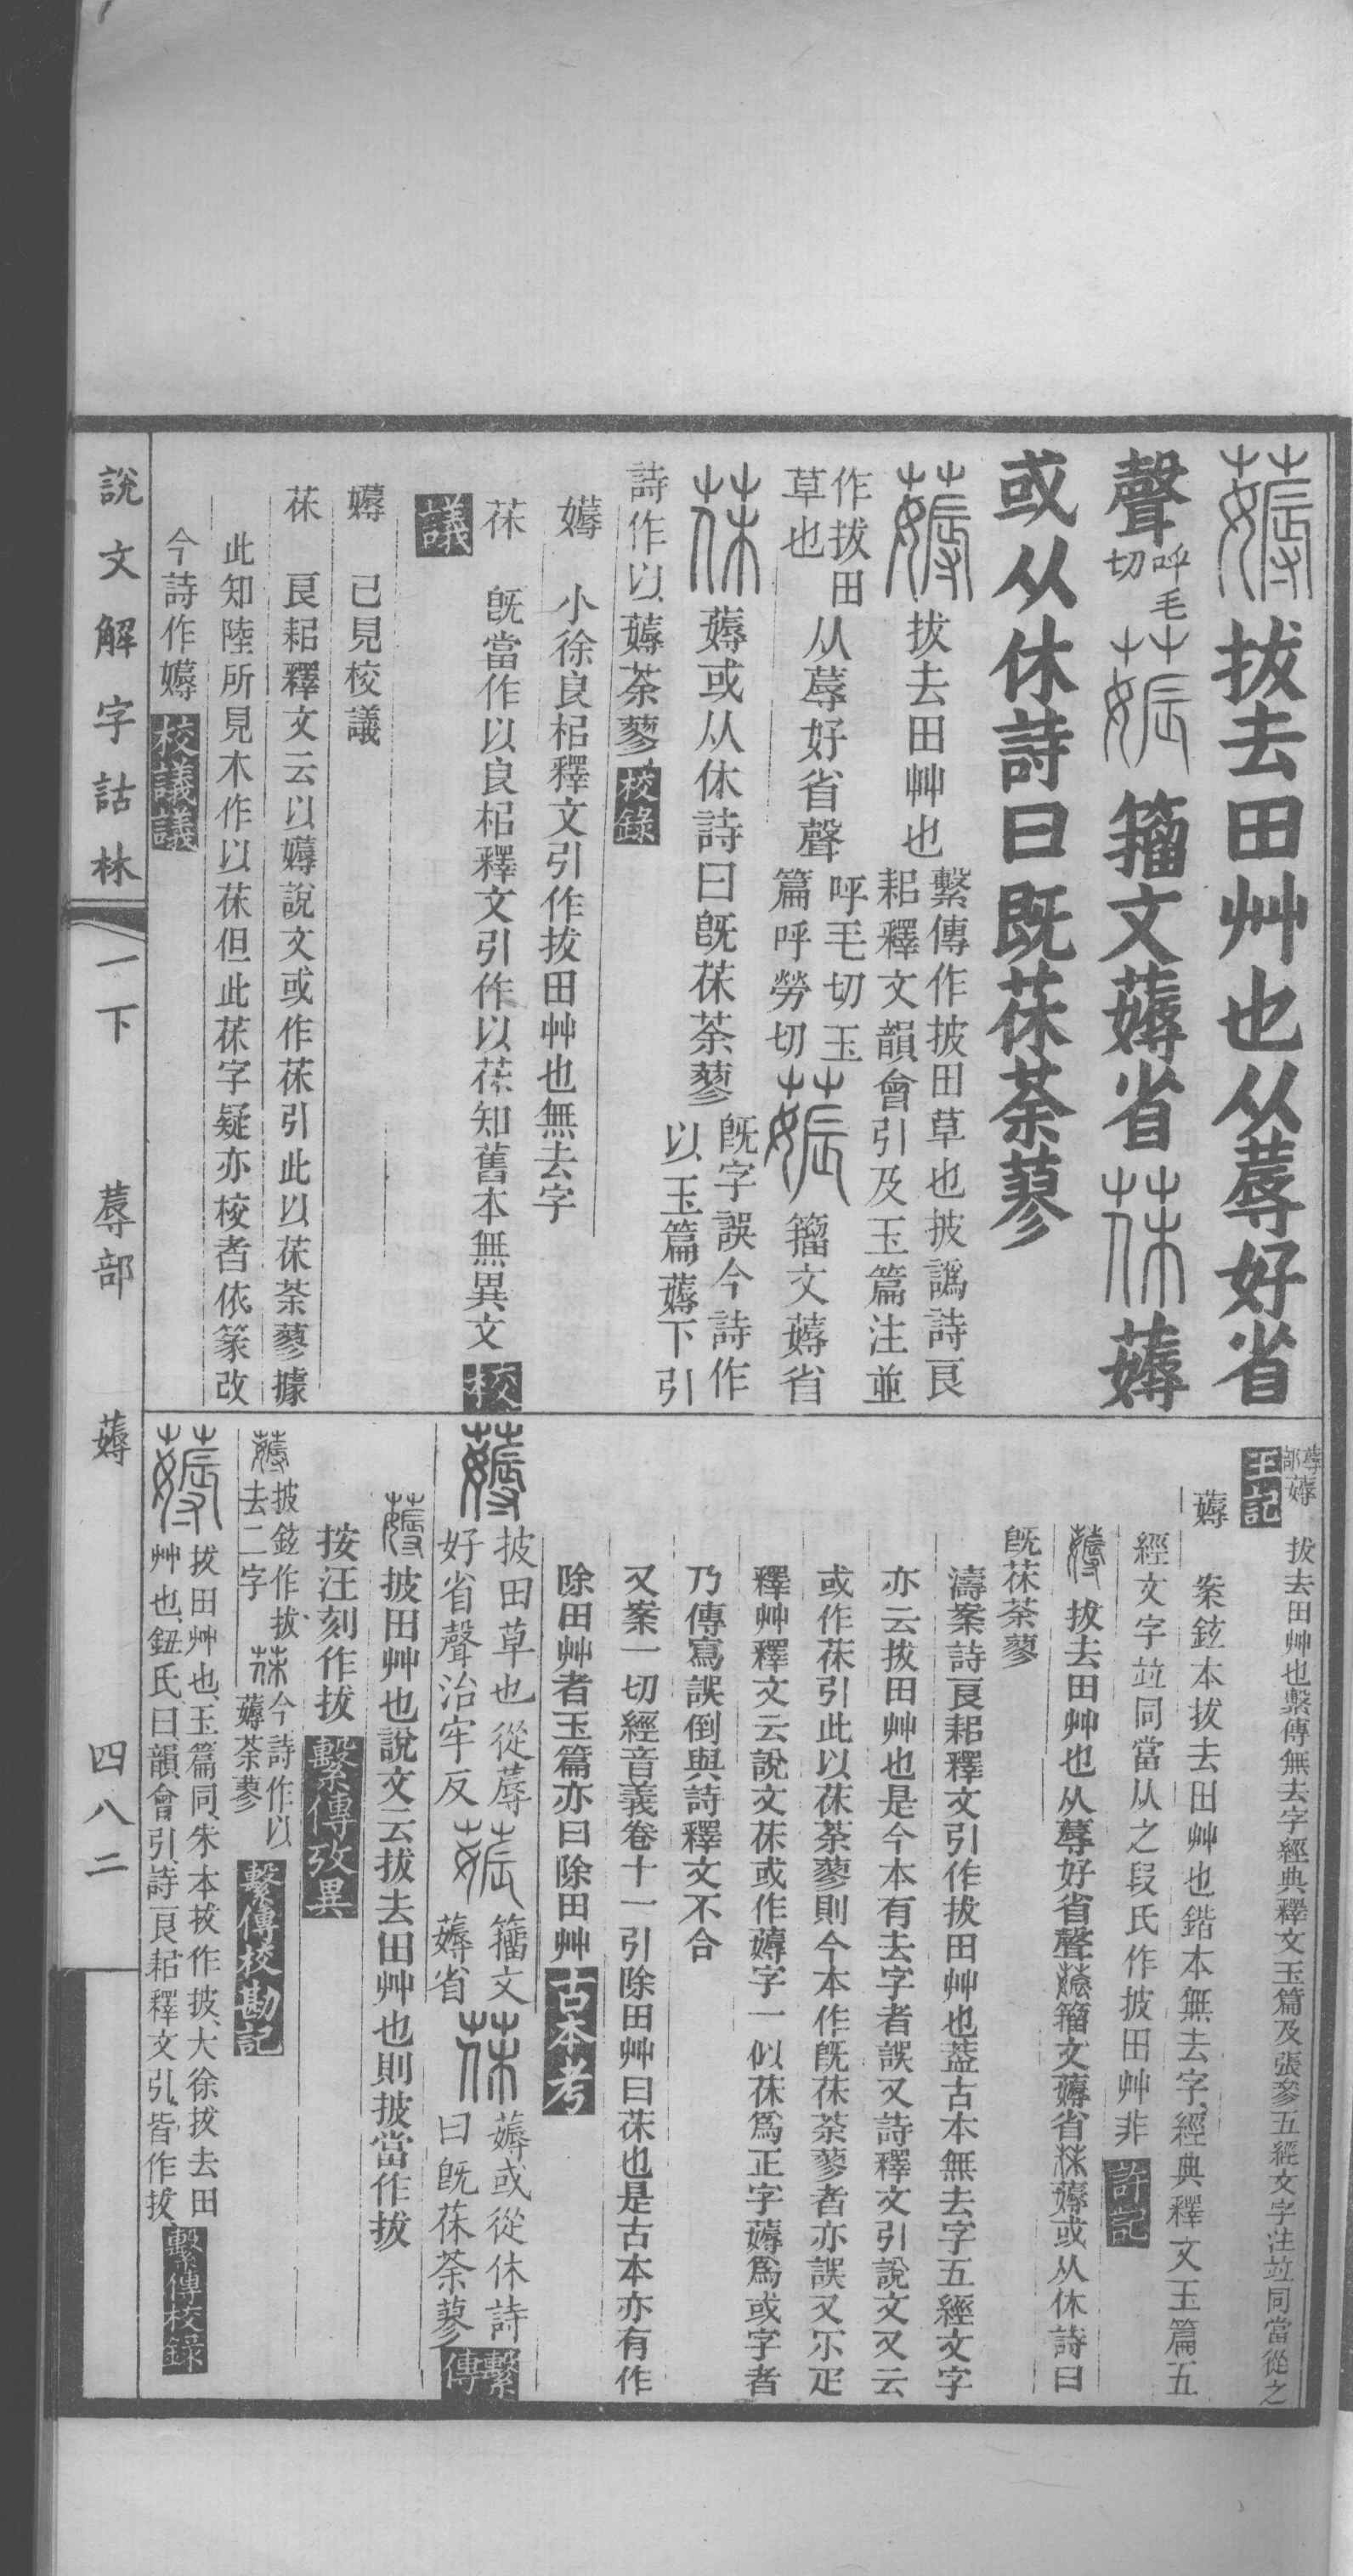 薅拔去田艸也从蓐好省
聲呼毛切薅籀文薅省茠薅
或从休詩曰既茠荼蓼
薅拔去田艸也繫傳作披田草也披譌詩良耜釋文韻會引及玉篇注並
作拔田草也从蓐好省聲呼毛切玉篇呼勞切薅籀文薅省
茠薅或从休詩曰旣茠荼蓼旣字誤今詩作以玉篇薅下引
詩作以薅荼蓼校錄
薅 小徐良耜釋文引作拔田艸也無去字
茠 旣當作以良耜釋文引作以茠知舊本無異文校
議
薅 已見校議
茠 良耜釋文云以薅說文或作茠引此以茠荼蓼據
此知陸所見木作以茠但此茠字疑亦校者依篆改
今詩作薅校議議
蓐部薅 拔去田艸也繫傳無去字經典釋文玉篇及張參五經文字注竝同當從之
王記
薅 案鉉本拔去田艸也鍇本無去字經典釋文玉篇五
經文字竝同當从之段氏作披田艸非許記
薅拔去田艸也从蓐好省聲薅籀文薅省茠薅或从休詩曰
旣茠荼蓼
濤案詩良耜釋文引作拔田艸也葢古本無去字五經文字
亦云拔田艸也是今本有去字者誤又詩釋文引說文又云
或作茠引此以茠荼蓼則今本作旣茠荼蓼者亦誤又尒疋
釋艸釋文云說文茠或作薅字一似茠爲正字薅爲或字者
乃傳寫誤倒與詩釋文不合
又案一切經音義卷十一引除田艸曰茠也是古本亦有作
除田艸者玉篇亦曰除田艸古本考
薅披田草也從蓐好省聲治牢反薅籀文薅省茠薅或從休詩曰旣茠荼蓼繫傳
薅披田艸也說文云拔去田艸也則披當作拔
按汪刻作拔繫傳攷異
薅披鉉作拔去二字茠今詩作以薅荼蓼繫傳校勘記
薅拔田艸也玉篇同朱本拔作披大徐拔去田
艸也鈕氏曰韻會引詩良耜釋文引皆作拔繫傳校錄
說文解字詁林 一下 蓐部 薅 四八二